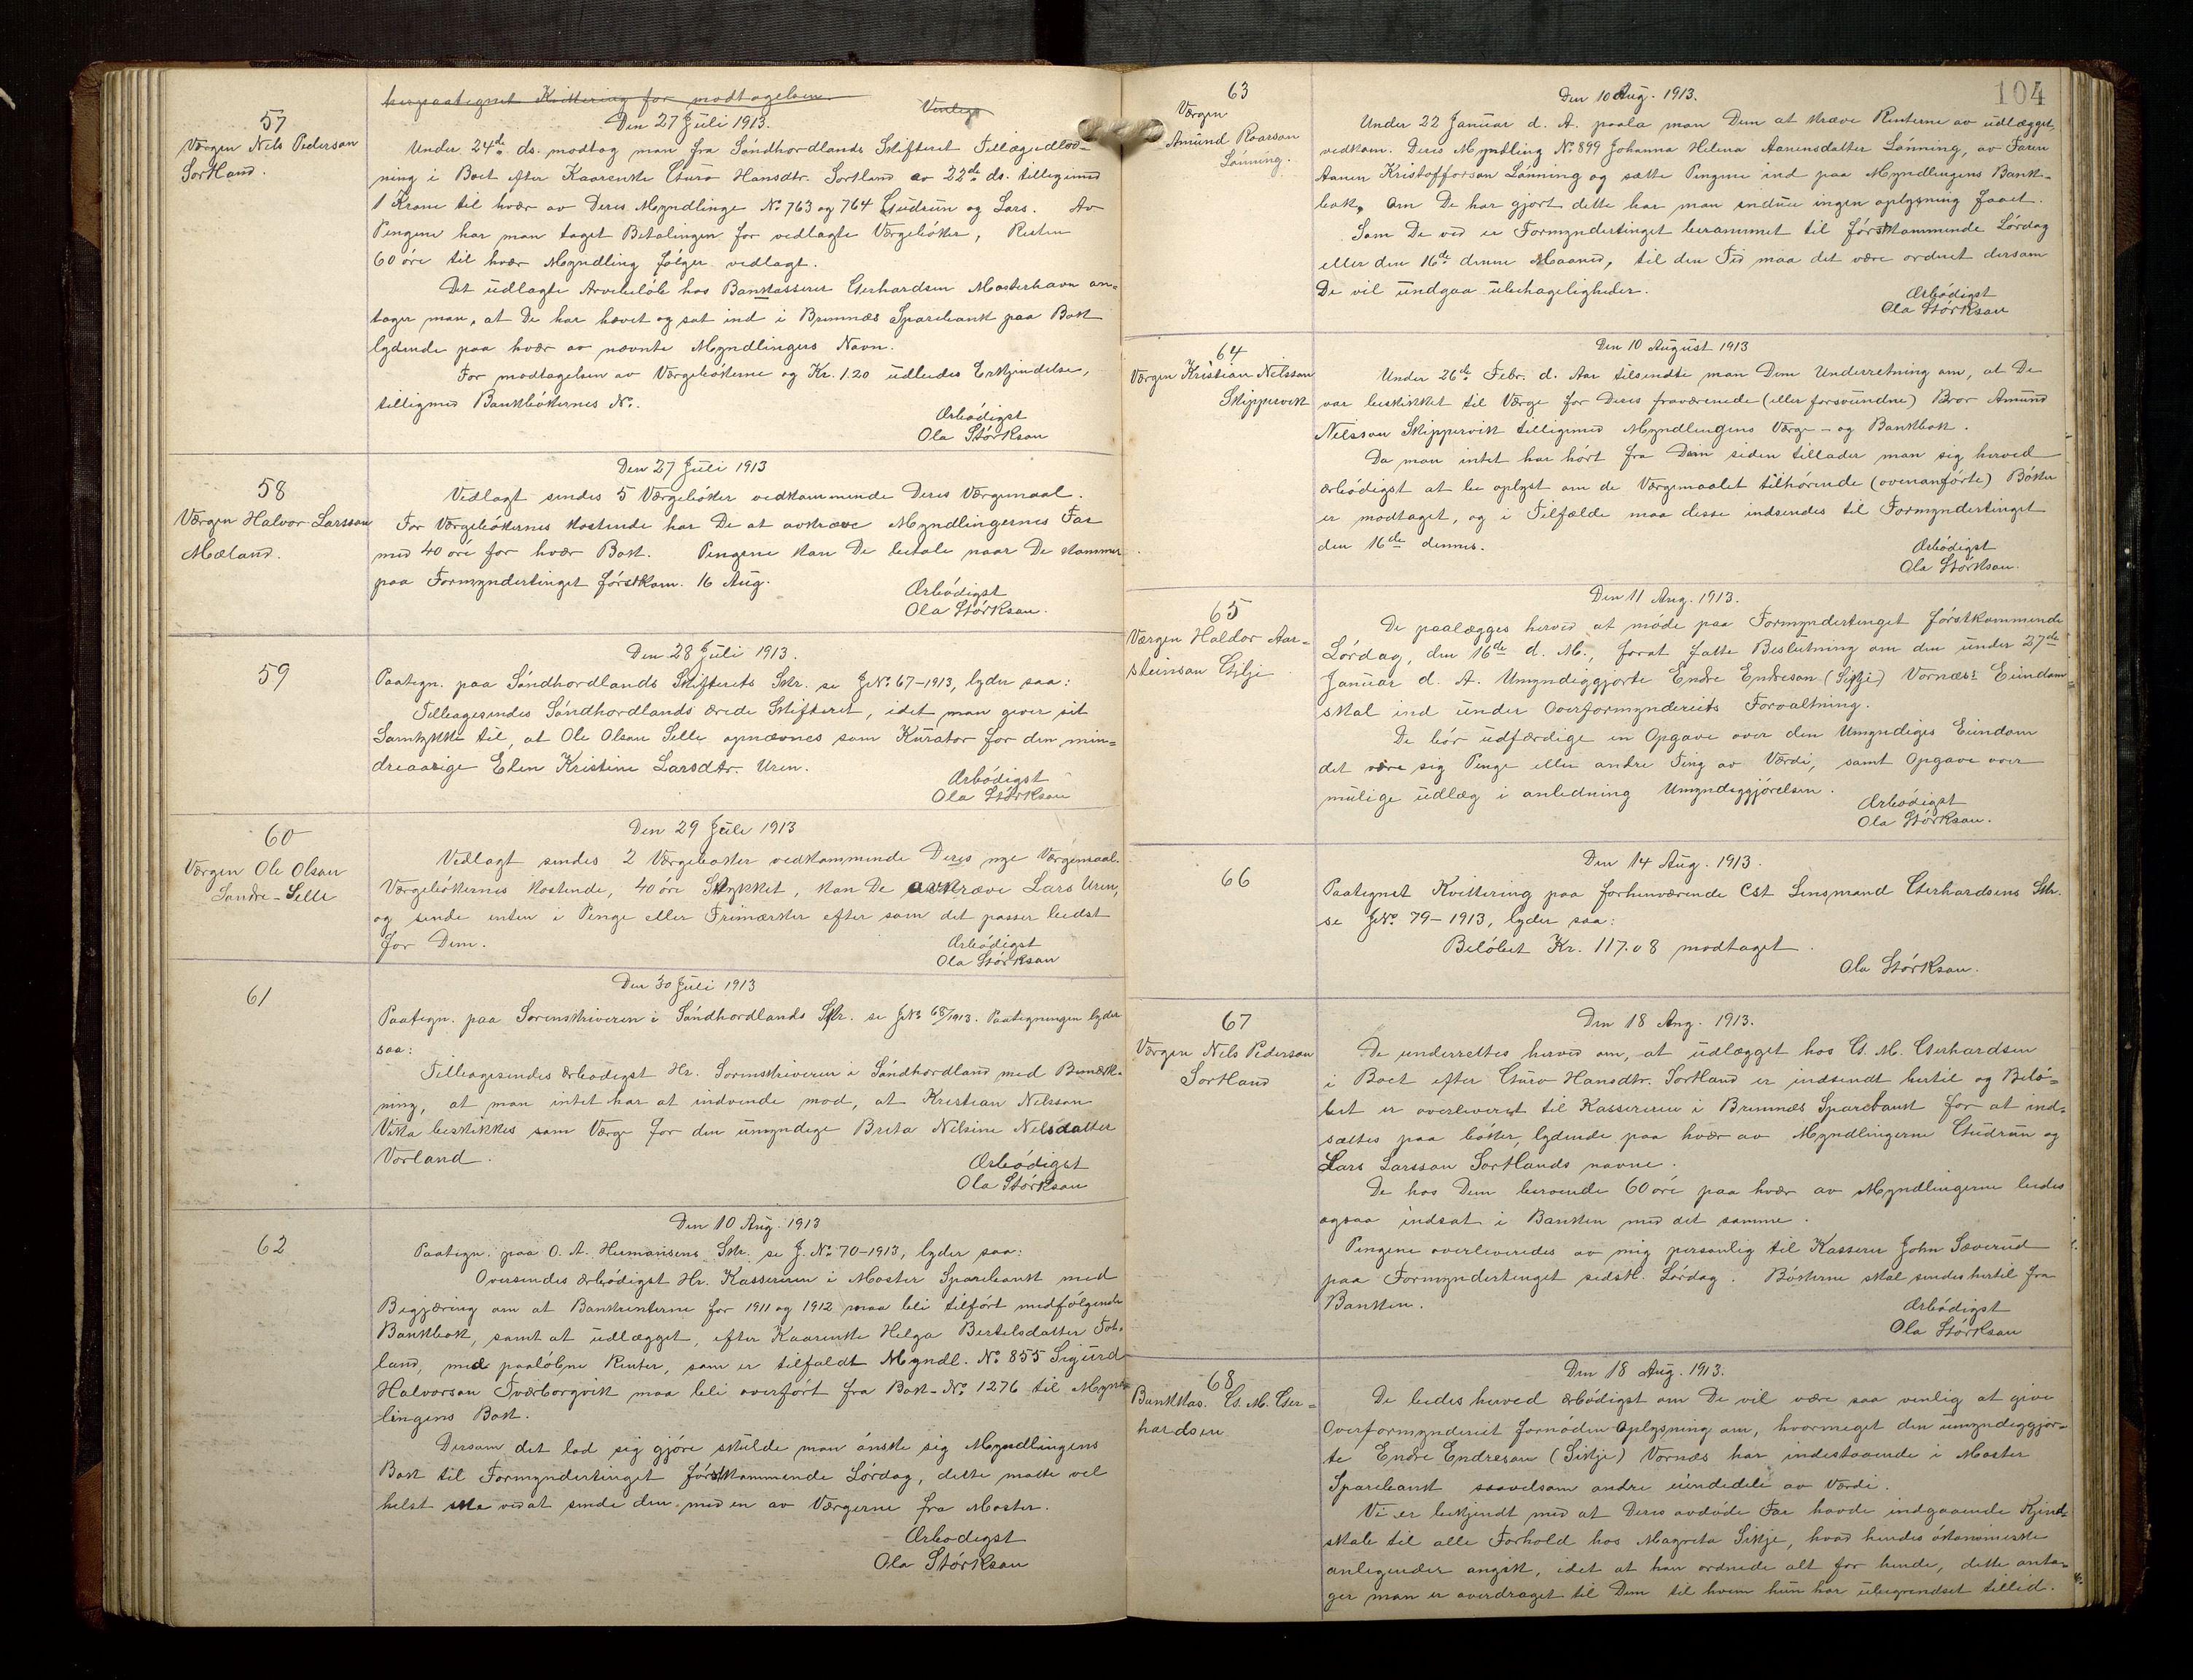 hospaategnet Kvittering for modtagelsen.
Venligs
57
Værgen Nels Pederson
Sortland.
Den 27 Juli 1913.
Under 24de ds. modtog man fra Söndhordlands Skifteret Tillægsudlod-
ning i Boet efter Kaarenke Guro Hansdtr. Sortland av 22de ds. tilligemed
1 Krone til hvær av Deres Myndlinge No. 763 og 764 Gudrun og Lars. Av
Pengene har man taget Betalingen for vedlagte Værgebøker, Resten
60 öre til hvær Myndling følger vedlagt.
Det udlagte Arvebelöb hos Bankkasserer Gerhardsen Mosterhavn an-
tager man, at De har hævet og sat ind i Bremnæs Sparebank paa Bok
lydende paa hvær av nævnte Myndlingers Navn.
For modtagelsen av Værgebökerne og Kr. 1.20 udbedes Erkjendelse,
tilligemed Bankbökernes No.
Ærbödigst
Ola Störkson
58
Værgen Halvor Larsson
Mæland.
Den 27 Juli 1913
Vedlagt sendes 5 Værgebøker vedkommende Deres Værgemaal.
For Værgebökernes kostende har De at avkræve Myndlingernes Far
med 40 öre for hvær Bok. Pengene kan De betale naar De kommer
paa Formyndertinget förstkom. 16 Aug.
Ærbödigst
Ola Störkson.
59
Den 28 Juli 1913.
Paategn. paa Söndhordlands Skifterets Skr. se J.No. 67-1913, lyder saa:
Tilbagesendes Söndhordlands ærede Skifteret, idet man giver sit
Samtykke til, at Ole Olson Selle opnævnes som Kurator for den min-
dreaarige Elen Kristine Larsdtr. Uren.
Ærbödigst
Ola Störkson
60
Værgen Ole Olson
Søndre-Selle
Den 29 Juli 1913
Vedlagt sendes 2 Værgebøker vedkommende Deres nye Værgemaal.
Værgebökernes kostende, 40 öre Stykket, kan De avkræve Lars Uren,
og sende enten i Penge eller Frimærker efter som det passer bedst
for Dem.
Ærbödigst
Ola Störkson
61
Den 30 Juli 1913
Paategn. paa Sorenskriveren i Söndhordlands Skr. se J.No. 68/1913. Paategningen lyder
saa:
Tilbagesendes ærbødigst Hr. Sorenskriveren i Söndhordland med Bemærk-
ning, at man intet har at indvende mod, at Kristian Nelsson
Vika beskikkes som Værge for den umyndige Brita Nelsine Nelsdatter
Vorland.
Ærbödigst
Ola Störkson
62
Den 10 Aug. 1913
Paategn. paa O. A. Hermansens Skr. se J.No. 70-1913, lyder saa:
Oversendes ærbödigst Hr. Kassereren i Moster Sparebank med
Begjæring om at Bankrenterne for 1911 og 1912 maa bli tilfört medfölgende
Bankbok, samt at udlægget, efter Kaarenke Helga Bertelsdatter Tot-
land, med paalöbne Renter, som er tilfaldt Myndl. No. 855 Sigurd
Halvorson Tværborgvik maa bli overfört fra Bok-No. 1276 til Mynd-
lingens Bok.
Dersom det lod sig gjöre skulde man önske sig Myndlingens
Bok til Formyndertinget förstkommende Lördag, dette matte vel
helst ske ved at sende den med en av Værgerne fra Moster.
Ærbödigst
Ola Störkson
104
63
Værgen
Amund Roarson
Lönning.
Den 10 Aug. 1913.
Under 22 Januar d. A. paala man Dem at kræve Renterne av udlægget,
vedkom. Deres Myndling No. 899 Johanna Helena Aanensdatter Lönning, av Faren
Aanen Kristofforson Lönning og sætte Pengene ind paa Myndlingens Bank-
bok. Om De har gjort dette har man endnu ingen oplysning faaet.
Som De ved er Formyndertinget berammet til förstkommende Lördag
eller den 16de denne Maaned, til den Tid maa det være ordnet dersom
De vil undgaa ubehageligheder.
Ærbödigst
Ola Störkson
64
Værgen Kristian Nilsson
Skippervik
Den 10 August 1913
Under 26de Febr. d. Aar tilsendte man Dem Underretning om, at De
var beskikket til Værge for Deres fraværende (eller forsvundne) Bror Amund
Nelsson Skippervik tilligemed Myndlingens Værge- og Bankbok.
Da man intet har hört fra Dem siden tillader man sig herved
ærbödigst at be oplyst om de Værgemaalet tilhörende (ovenanförte) Böker
er modtaget, og i Tilfælde maa disse indsendes til Formyndertinget
den 16de dennes.
Ærbödigst
Ola Störkson.
65
Værgen Haldor Aar-
steinson Gilje
Den 11 Aug. 1913.
De paalægges herved at möde paa Formyndertinget förstkommende
Lördag, den 16de d. M., forat fatte Beslutning om den under 27de
Januar d. A. Umyndiggjorte Endre Endreson (Sikje) Vornæs' Eiendom
skal ind under Overformynderiets Forvaltning.
De bör udfærdige en Opgave over den Umyndiges Eiendom
det være sig Penge eller andre Ting av Værdi, samt Opgave over
mulige udlæg i anledning Umyndiggjörelsen.
Ærbödigst
Ola Störkson.
66
Den 14 Aug. 1913.
Paategnet Kvittering paa forhenværende Cst Lensmand Gerhardsens Skr.
se J.No. 79-1913, lyder saa:
Belöbet Kr. 117.08 modtaget.
Ola Störkson.
67
Værgen Nels Pederson
Sortland
Den 18 Aug. 1913.
De underrettes herved om, at udlægget hos G. M. Gerhardsen
i Boet efter Guro Hansdtr. Sortland er indsendt hertil og Belö-
bet er overleveret til Kassereren i Bremnæs Sparebank for at ind-
sættes paa böker, lydende paa hvær av Myndlingerne Gudrun og
Lars Larsson Sortlands navne.
De hos Dem beroende 60 öre paa hvær av Myndlingerne bedes
ogsaa indsat i Banken med det samme.
Pengene overleveredes av mig personlig til Kasserer John Sæverud
paa Formyndertinget sidstl. Lördag. Bökerne skal sendes hertil fra
Banken.
Ærbödigst
Ola Störkson
68
Bankkas. G. M. Ger-
hardsen
Den 18 Aug. 1913.
De bedes herved ærbödigst om De vil være saa venlig at give
Overformynderiet fornöden Oplysning om, hvormeget den umyndiggjor-
te Endre Endreson (Sikje) Vornæs har indestaaende i Moster
Sparebank saavelsom andre eiendele av Værdi.
Vi er bekjendt med at Deres avdöde Far havde indgaaende Kjend-
skab til alle Forhold hos Magreta Sikje, hvad hendes ökonomiske
anligender angik, idet at han ordnede alt for hende, dette anta-
ger man er overdraget til Dem til hvem hun har ubegrendset tillid.